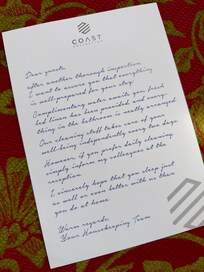 COAST
Dear guests,
after another thorough inspection
I want to assure you that everything
is well-prepared for your stay.
Complimentary water awaits you, fresh
bed linen has been provided and every-
thing in the bathroom is neatly arranged.
Our cleaning staff takes care of your
well-being independently every two days.
However, if you prefer daily cleaning,
simply inform my colleagues at the
reception.
I sincerely hope that you sleep just
as well or even better with us than
you do at home.
Warm regards,
Your Housekeeping Team